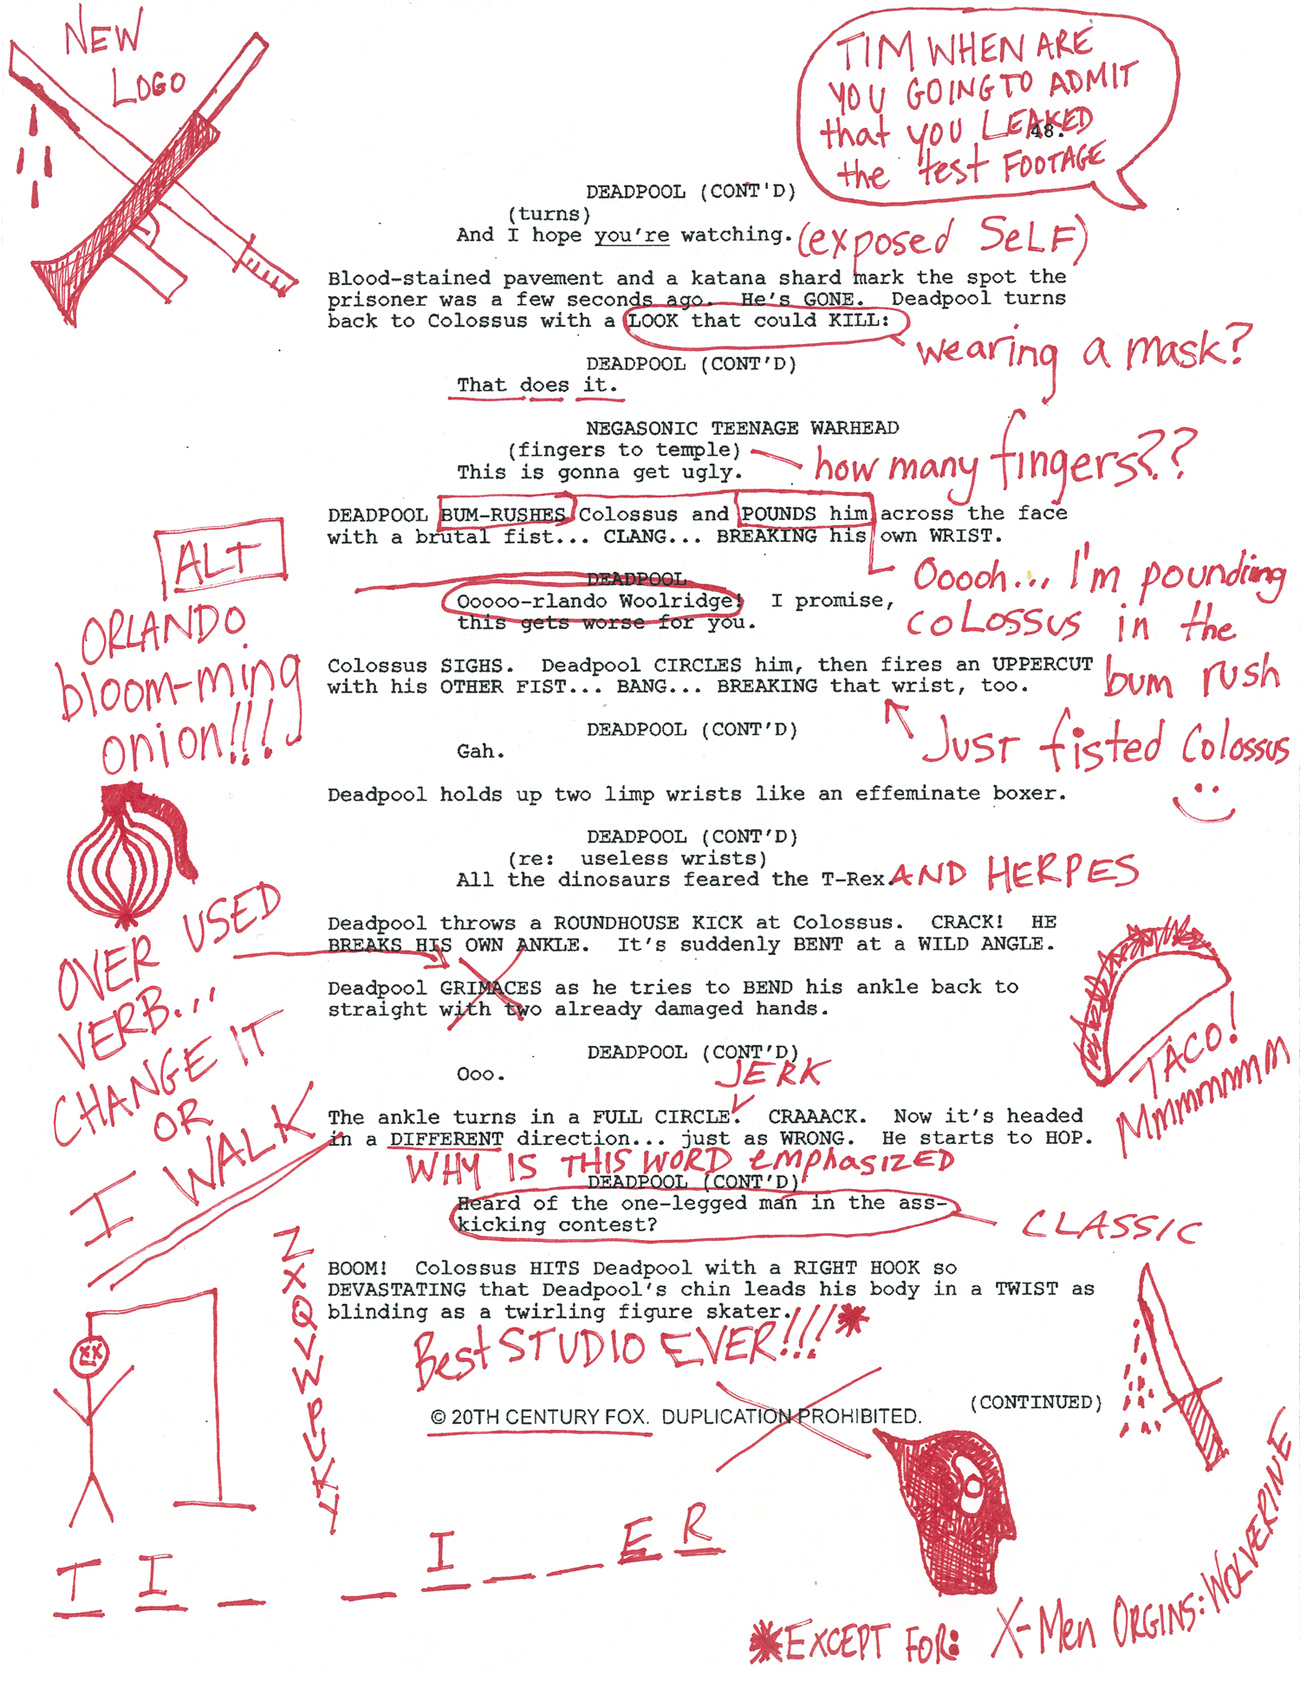 NEW
LOGO
TIM WHEN ARE
YOU GOING TO ADMIT
that you LEAKED
48.
the test FOOTAGE
DEADPOOL (CONT'D)
(turns)
And I hope you're watching. (exposed SeLF)
Blood-stained pavement and a katana shard mark the spot the
prisoner was a few seconds ago. He's GONE. Deadpool turns
back to Colossus with a LOOK that could KILL:
wearing a mask?
DEADPOOL (CONT'D)
That does it.
NEGASONIC TEENAGE WARHEAD
(fingers to temple)
how many fingers??
This is gonna get ugly.
DEADPOOL BUM-RUSHES Colossus and POUNDS him across the face
with a brutal fist... CLANG... BREAKING his own WRIST.
Ooooh... I'm pounding
COLOSSUS in the
bum rush
ALT
ORLANDO
bloom-ming
onion!!!
DEADPOOL
Ooooo-rlando Woolridge! I promise,
this gets worse for you.
Colossus SIGHS. Deadpool CIRCLES him, then fires an UPPERCUT
with his OTHER FIST... BANG... BREAKING that wrist, too.
JUST fisted Colossus
DEADPOOL (CONT'D)
Gah.
Deadpool holds up two limp wrists like an effeminate boxer.
DEADPOOL (CONT'D)
(re: useless wrists)
All the dinosaurs feared the T-Rex. AND HERPES
Deadpool throws a ROUNDHOUSE KICK at Colossus. CRACK! HE
BREAKS HIS OWN ANKLE. It's suddenly BENT at a WILD ANGLE.
OVER USED
VERB...
CHANGE IT
OR
I WALK
Deadpool GRIMACES as he tries to BEND his ankle back to
straight with two already damaged hands.
TACO!
Mmmmmmm
DEADPOOL (CONT'D)
Ooo.
JERK
The ankle turns in a FULL CIRCLE. CRAAACK. Now it's headed
in a DIFFERENT direction... just as WRONG. He starts to HOP.
WHY IS THIS WORD emphasized
DEADPOOL (CONT'D)
Heard of the one-legged man in the ass-
kicking contest?
CLASSIC
BOOM! Colossus HITS Deadpool with a RIGHT HOOK so
DEVASTATING that Deadpool's chin leads his body in a TWIST as
blinding as a twirling figure skater.
Best STUDIO EVER!!!*
(CONTINUED)
© 20TH CENTURY FOX. DUPLICATION PROHIBITED.
N
X
Q
V
W
P
U
K
Y
T I _ _ I _ _ E R
*EXCEPT FOR: X-Men ORGINS: WOLVERINE